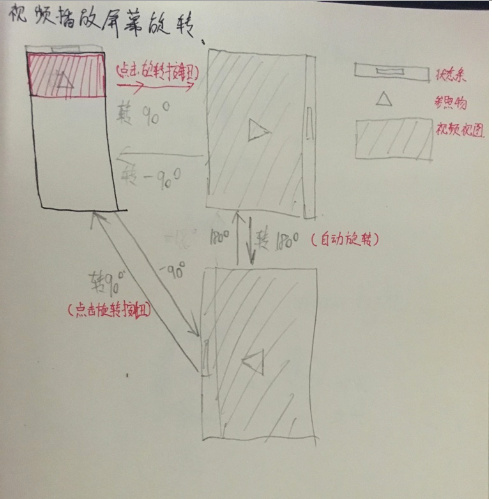 视频播放屏幕旋转、
(点击旋转按钮)
转 90°
转 -90°
状态条
参照物
视频视图
180°
转 180°
(自动旋转)
-90°
转90°
(点击旋转按钮)